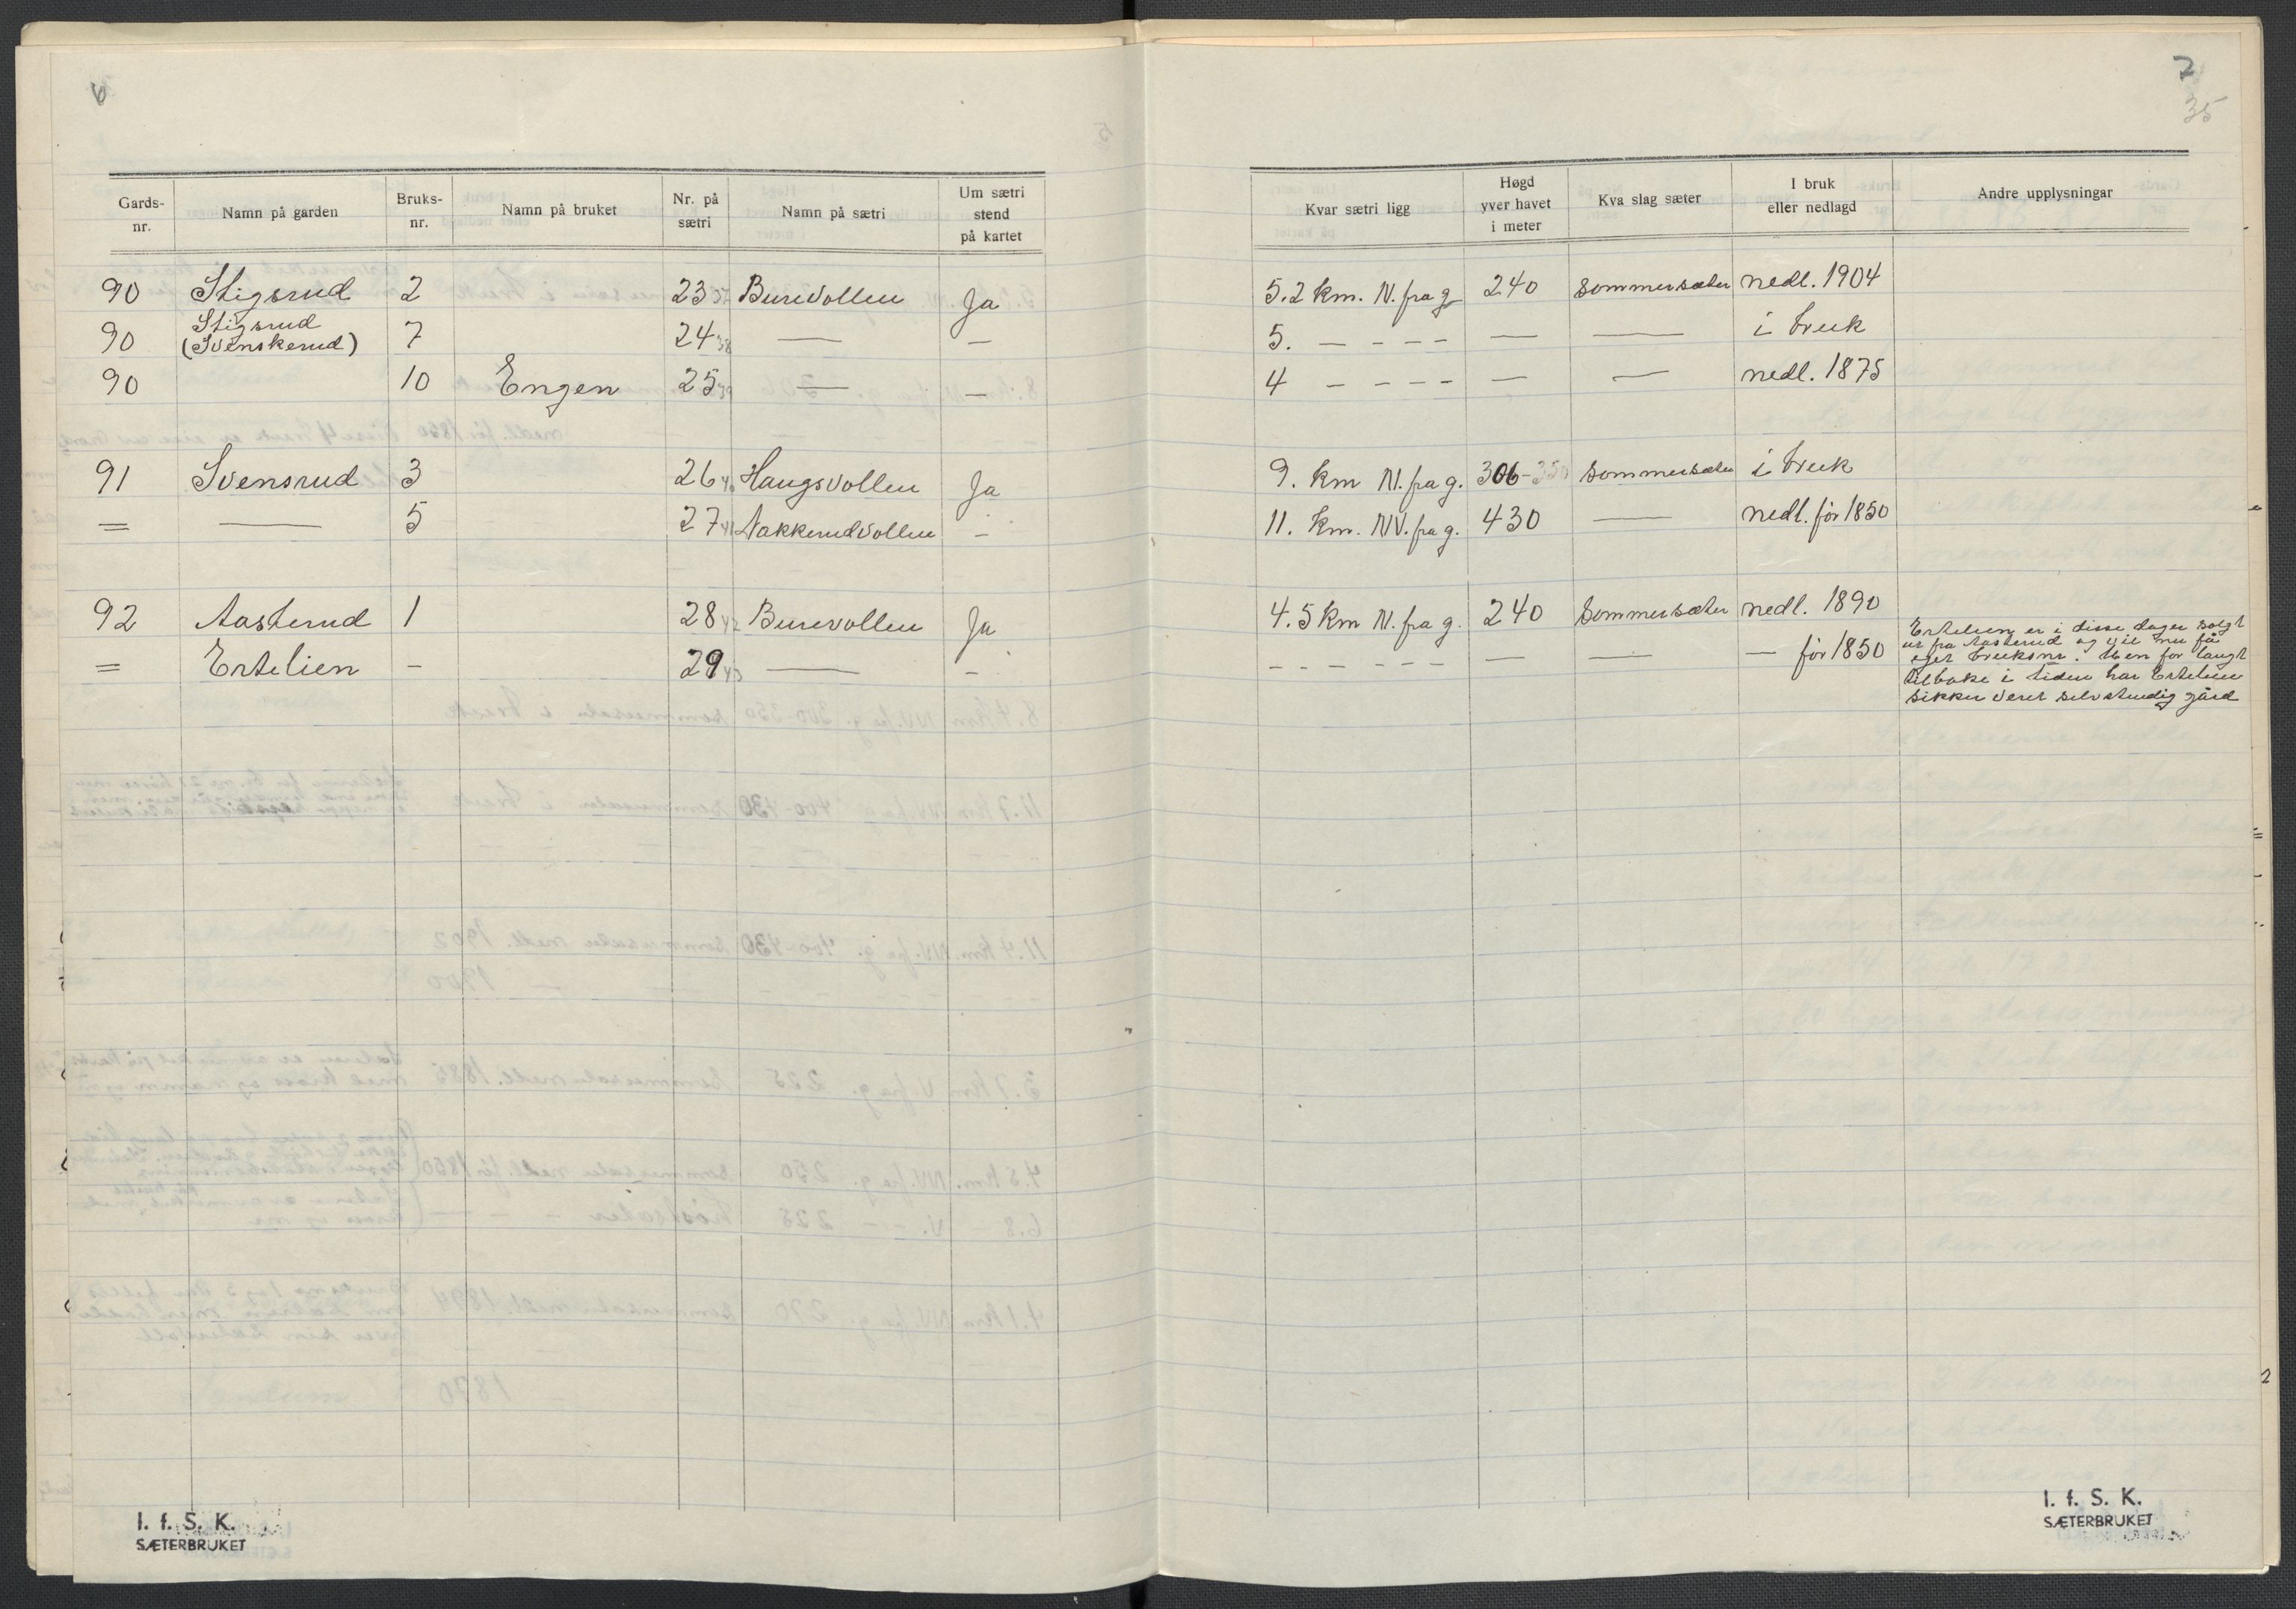 6
Gards-nr. Namn på garden Bruks-nr. Namn på bruket Nr. på sætri Namn på sætri Um sætri stend på kartet
90 Stigsrud 2 23 37 Burevollen Ja
90 Stigsrud (Svenskerud) 7 24 38 — —
90 10 Engen 25 39 — —
91 Svensrud 3 26 40 Haugsvollen Ja
= — 5 27 41 Nakkerudvollen —
92 Aasterud 1 28 42 Burevollen Ja
= Ertelien - 29 43 — -
I. f. S. K.
SÆTERBRUKET
7
35
Kvar sætri ligg Høgd yver havet i meter Kva slag sæter I bruk eller nedlagd Andre upplysningar
5.2 km. N. fra g 240 sommersæter nedl. 1904
5. — - - - — — i bruk
4 — - - - — — nedl. 1875
9. km N. fra g. 306-350 sommersæter i bruk
11. km. NV. fra g. 430 — nedl. før 1850
4.5 km N. fra g. 240 sommersæter nedl. 1890
- - - - - - — — — før 1850
Ertelien er i disse dager solgt
ut fra Aasterud og vil nu få
eget bruksnr. Men for langt
tilbake i tiden har Ertelien
sikker veret selvstendig gård
I. f. S. K.
SÆTERBRUKET